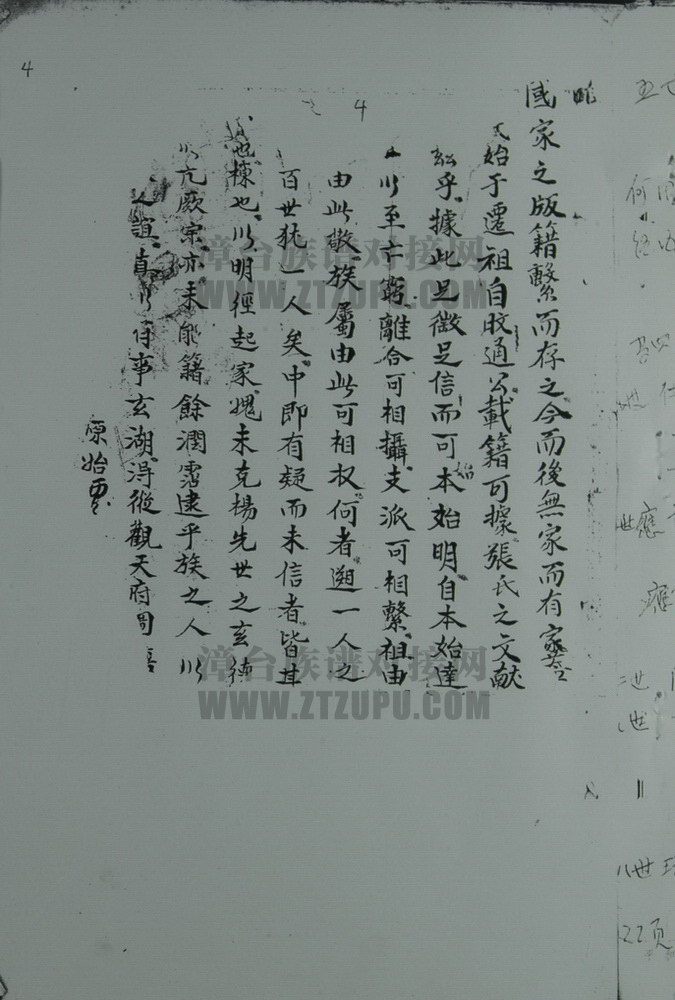 4
4
國家之版籍繫而存之今而後無家而有
始于遷祖自收通公載籍可據張氏之文献
乎據此足徵足信而可本始明自本始達
始
以至亡窮離合可相攝支派可相繫祖由
由此敬族屬由此可相权何者遡一人之
百世犹一人矣中即有疑而未信者皆其
也棟也以明徑起家媿未克楊先世之玄德
以亢厥宗亦未能籍餘潤霑逮乎族之人以
誼真以侍事玄湖淂從觀天府周
原始要
五
何
经
世
世應
應
二世
世
八世
22页
漳台族谱对接网
WWW.ZTZUPU.COM
漳台族谱对接网
WWW.ZTZUPU.COM